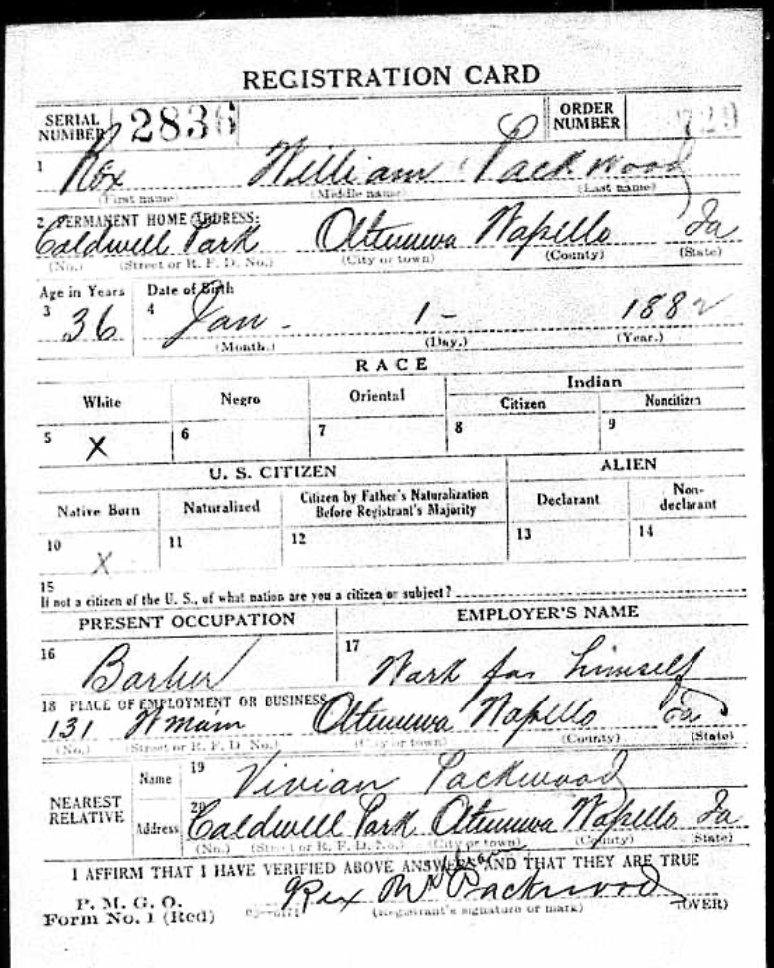 REGISTRATION CARD
SERIAL NUMBER 2836 ORDER NUMBER 729
1 Rex William Packwood
(First name) (Middle name) (Last name)
2 PERMANENT HOME ADDRESS:
Caldwell Park Ottumwa Wapello Ia
(No.) (Street or R. F. D. No.) (City or town) (County) (State)
Age in Years Date of Birth
3 36 4 Jan - 1 - 1882
(Month.) (Day.) (Year.)
RACE
White Negro Oriental Indian
Citizen Noncitizen
5 X 6 7 8 9
U. S. CITIZEN ALIEN
Native Born Naturalized Citizen by Father's Naturalization Before Registrant's Majority Declarant Non-declarant
10 X 11 12 13 14
15
If not a citizen of the U. S., of what nation are you a citizen or subject?
PRESENT OCCUPATION EMPLOYER'S NAME
16 Barber 17 Work for himself
18 PLACE OF EMPLOYMENT OR BUSINESS
131 W main Ottumwa Wapello Ia
(No.) (Street or R. F. D. No.) (City or town) (County) (State)
NEAREST RELATIVE Name 19 Vivian Packwood
Address 20 Caldwell Park Ottumwa Wapello Ia
(No.) (Street or R. F. D. No.) (City or town) (County) (State)
I AFFIRM THAT I HAVE VERIFIED ABOVE ANSWERS AND THAT THEY ARE TRUE
P. M. G. O.
Form No. 1 (Red) Rex Packwood
(Registrant's signature or mark) (OVER)